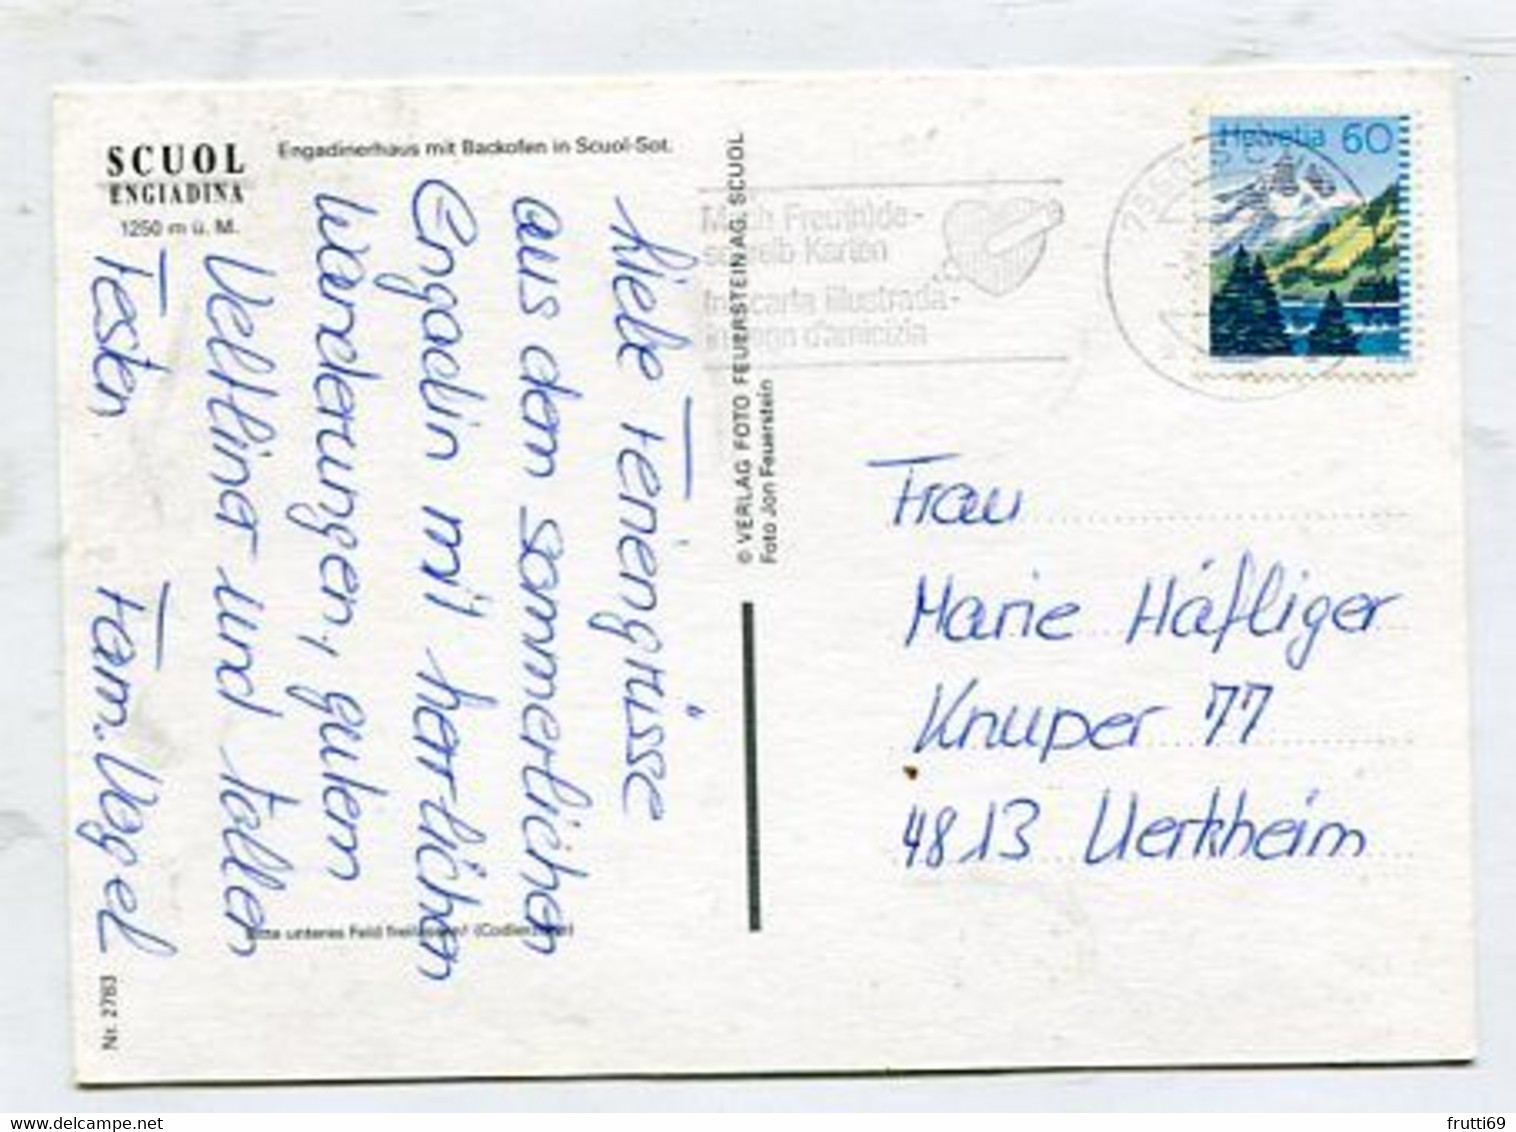 SCUOL
ENGIADINA
1250 m ü. M.
Engadinerhaus mit Backofen in Scuol-Sot.
Liebe Feriengrüsse
aus dem sommerlichen
Engadin mit herrlichen
Wanderungen, gutem
Veltliner und tollen
Festen Fam. Vogel
Bitte unteres Feld freilassen! (Codierzone)
Nr. 2783
© VERLAG FOTO FEUERSTEIN AG. SCUOL
Foto Jon Feuerstein
Mach Freu(n)de-
schreib Karten
carta illustrada-
d'amicizia
Helvetia 60
Frau
Marie Häfliger
Knuper 77
4813 Uerkheim
frutti69